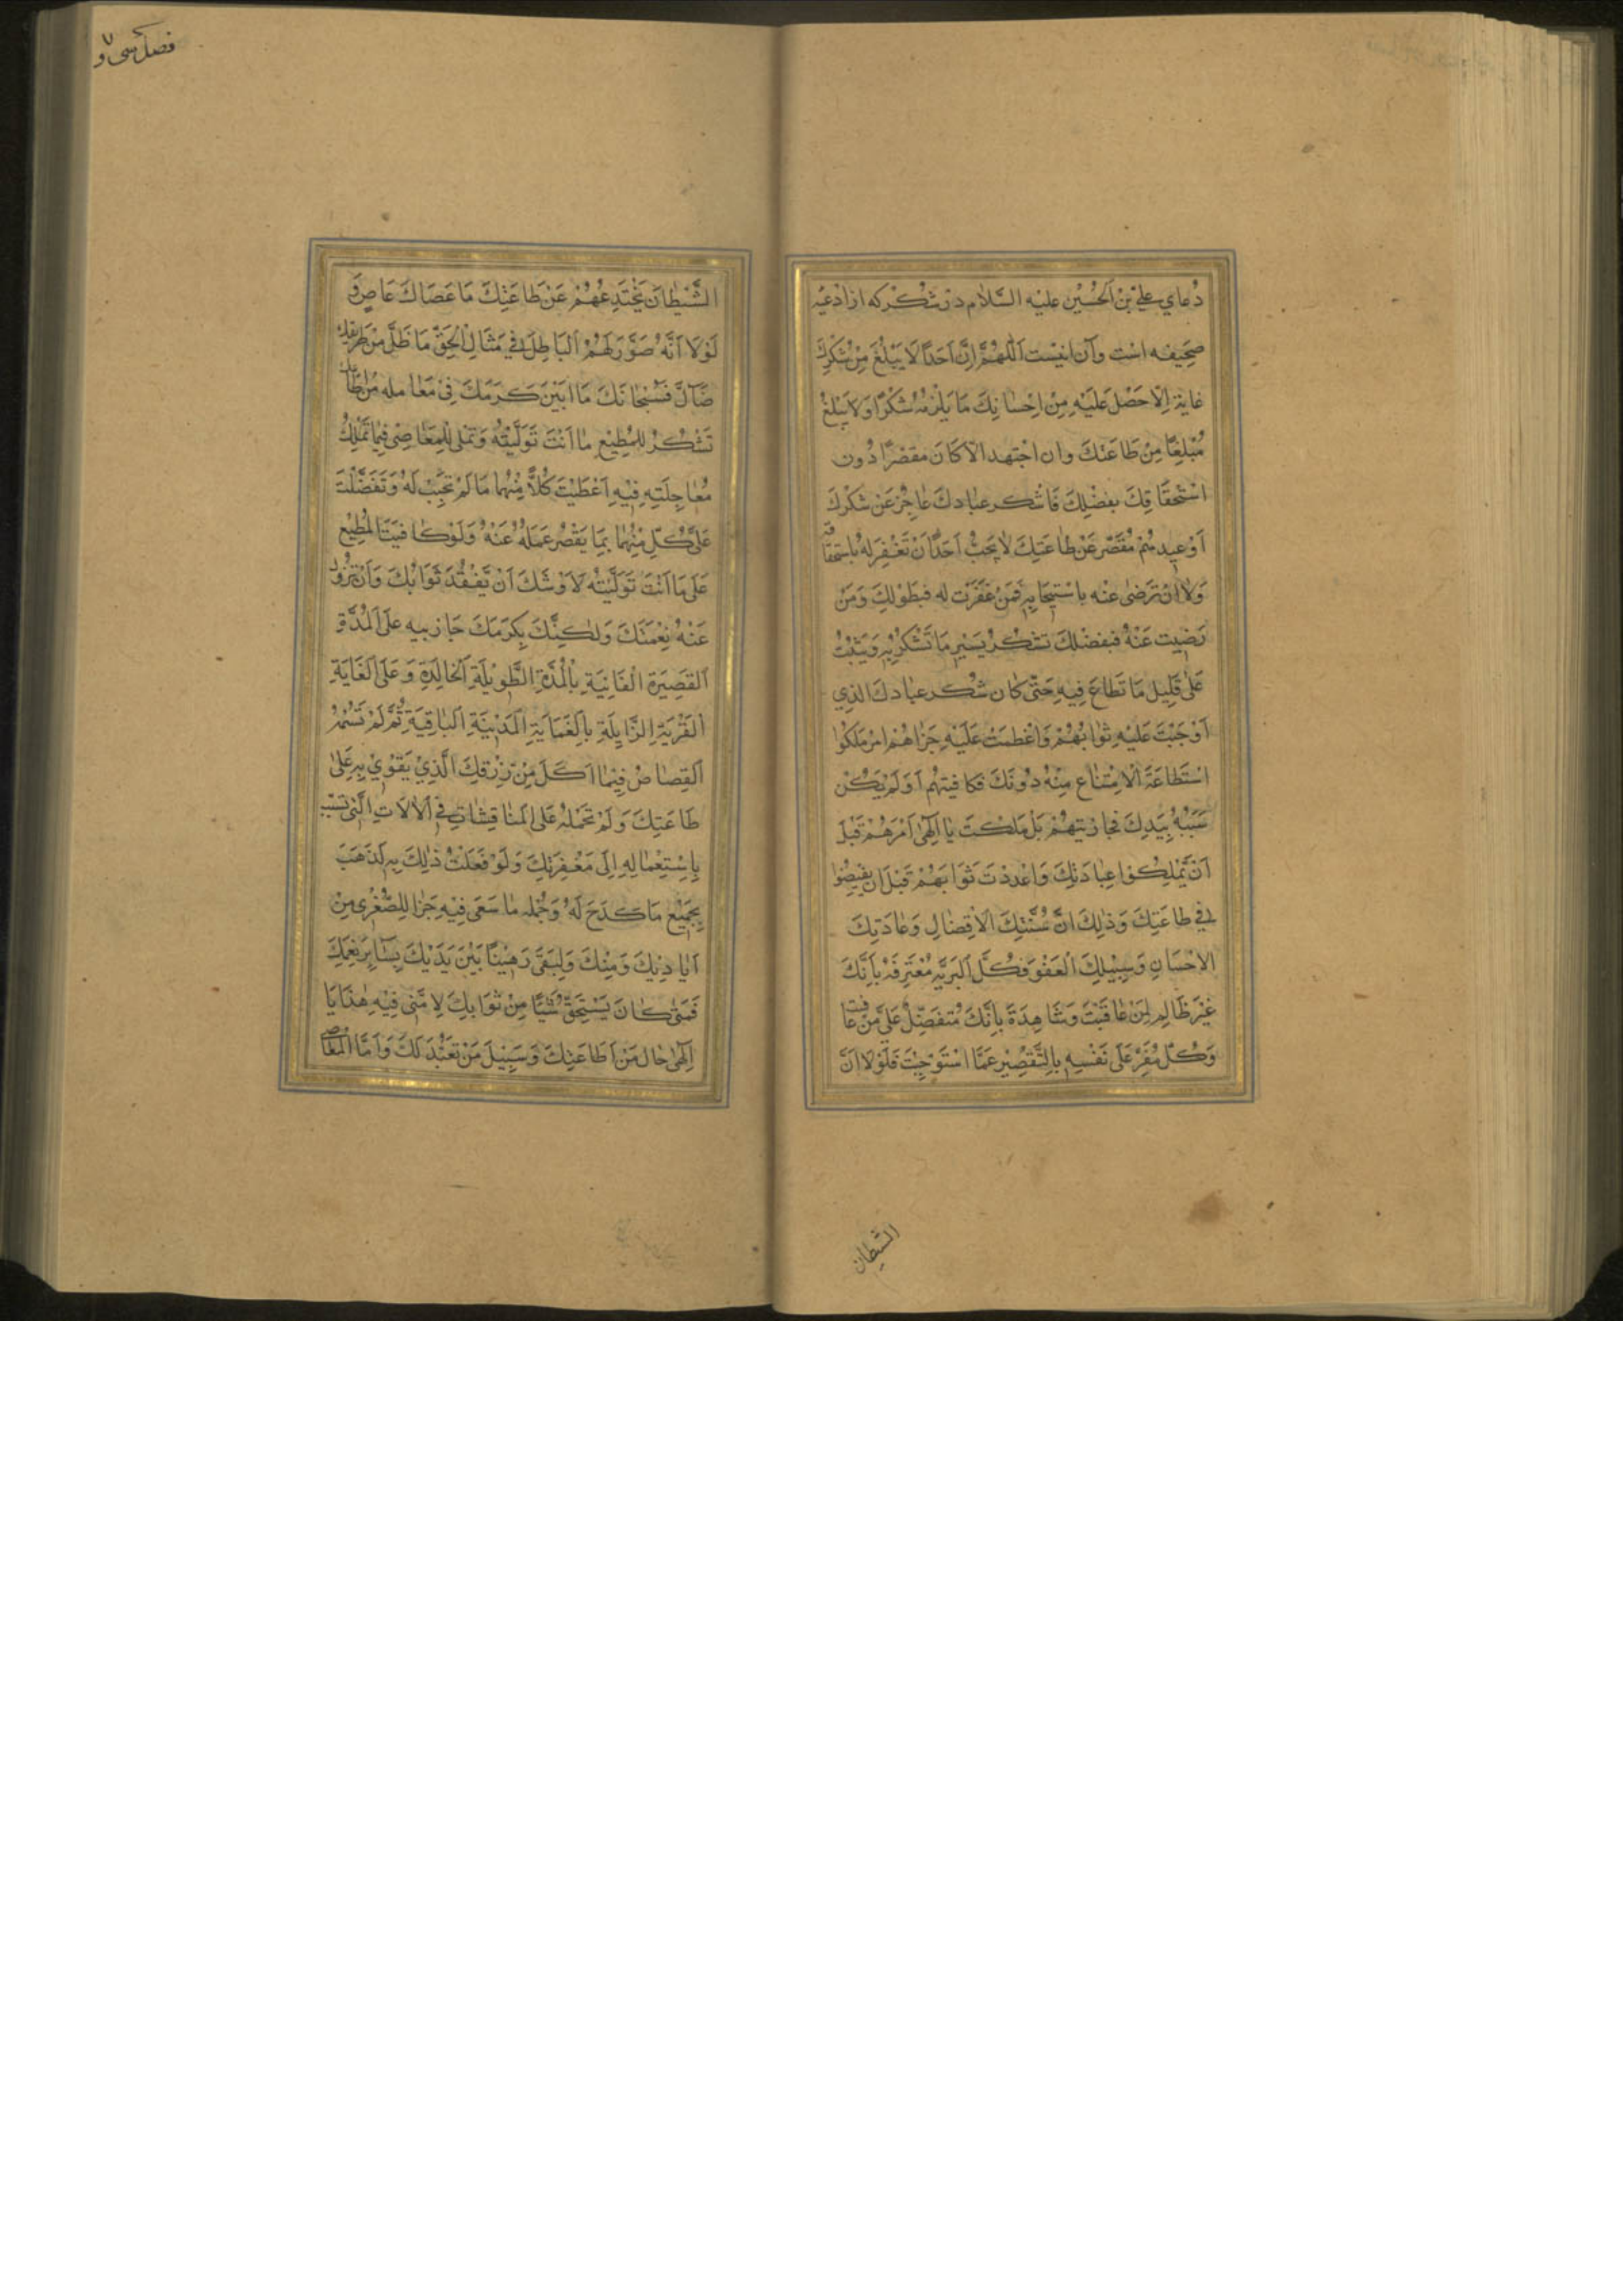 دُعاي عليّ بْنِ الحُسَيْنِ عليه السَّلام در شُكْر كه از ادعيه
صَحِيفه است وآن اينست اَللّٰهُمَّ اِنَّ اَحَدًا لَا يَبْلُغُ مِنْ شُكْرِكَ
غايةً اِلّا حَصَلَ عَلَيْهِ مِنْ اِحْسٰانِكَ مَا يَلْزَمُهُ شُكْرًا وَلَا يَبْلُغُ
مَبْلَغًا مِنْ طَاعَتِكَ وان اجْتهد الّا كَانَ مقصّرًا دُون
اسْتحْقَاقِكَ بفضْلِكَ فَاشْكر عبٰادِكَ عٰاجِزٌ عَنْ شُكْرِكَ
اَوْعبدهُمْ مُقَصّر عَنْ طٰاعَتِكَ لٰا يَجِبُ اَحَدًا اَنْ تَغْفِرَ لَهُ بِاسْتحقٰاقه
وَلٰا اَنْ تَرْضٰى عنْه باسْتِيجٰابِهِ فَمَنْ غَفَرْت له فبطَوْلِكَ وَمَنْ
رَضِيت عَنْهُ فبفضْلِكَ تشْكُرُ يَسِيرَ مَا تَشْكُرُ بِهِ وَيَثِيْبُ
عَلٰى قَلِيل مَا تَطَاعَ فِيهِ حَتّٰى كَان شُكْر عبٰادكَ الذِي
اَوْجَبْتَ عَلَيْهِ ثوٰابَهُمْ وَاعْظمَتْ عَلَيْهِ جَزٰاهُم امر مَلَكُوا
اسْتَطاعَةَ الْاِمْتنٰاع مِنْهُ دُونَكَ فكافيتهُم اَوَلَمْ يَكُنْ
سَبَبُهُ بِيَدِكَ فجازيتهُمْ بَلْ مَلَكتَ يٰا اِلٰهِى اَمْرَهُمْ قَبْلَ
اَنْ يَّمْلِكُوا عِبٰادَتِكَ وَاعْددْتَ ثَوَابَهُمْ قَبْلَ اَن يفيضُوا
فِي طاعَتِكَ وَذٰلِكَ اَنَّ سُنَّتِكَ الْاَفْضٰالِ وَعٰادَتِكَ
الاحْسَانِ وَسَبِيْلِكَ الْعَفْوَ فكُلَّ الْبَرِيَّةِ مُعْتَرِفَه بِاَنَّكَ
غيْرَ ظَالِمٍ لِمَنْ عٰاقَبْتَ وَشَاهِدَةٌ بِاَنَّكَ مُتفَضِّلٌ عَلىٰ مَنْ عٰافيت
وَكُلّ مُقِرّ عَلٰى نَفْسِهِ بِالتَّقْصِيْرِ عَمَّا اسْتَوْجَبْتَ فَلَوْلٰا اَنَّ
الشيطان
فصل سى و ٧
الشَّيْطٰانَ يَخْتَدِعُهُمْ عَنْ طَاعَتِكَ مَا عَصَاكَ عَاصٍ وَ
لَوْلَا اَنَّهُ صَوَّرَ لَهُمُ الْبَاطِلَ فِي مَثَالِ الْحَقِّ مَا ضَلَّ مِنْ طَرِيقِكَ
ضَآلٌّ فَسُبْحٰانَكَ مَا اَبْيَنَ كَرَمَكَ فِيْ مَعٰامله مَنْ اطَاعَ
تَشْكُرُ للمُطِيْعِ مٰا اَنْتَ تَوَلَّيْتُهُ وَتَمْلى لِلْمعَاصِى فِيْمَا تَمْلِكُ
مُعٰاجِلَتِهِ فِيْهِ اَعْطَيْتَ كُلًّا مِنْهُمَا مَا لَمْ يَجِبْ لَهُ وَتَفَضَّلْتَ
عَلىٰ كُلٍّ مِنْهُمٰا بِمَا يَقْصُرُ عَمَلُهُ عَنْهُ وَلَوْ كَافَيْتَ المُطِيْعَ
عَلٰى مَا اَنْتَ تَوَلَّيْتُه لَاَوْشَكَ اَنْ يَّفْقُدَ ثَوَابُكَ وَاَنْ تَزُولَ
عَنْهُ نِعْمَتَكَ وَلٰكِنَّكَ بِكَرَمِكَ جَازيته عَلَى المُدَّةِ
اَلقَصِيَرَةِ الْفَانِيَةِ بِالْمُدَّةِ الطَّوِيْلَةِ الْخالِدَةِ وَعَلَى الغَايَةِ
اَلْقَرِيْبَةِ الزَّايِلَةِ بِالْغَايَةِ الْمَدِيْنَةِ الْبَاقِيَةِ ثُمَّ لَمْ تَسُمْهُ
اَلقِصاصُ فِيْمٰا اَكَلَ مِنْ رِزْقِكَ الَّذِيْ يَقْوٰى بِهِ عَلٰى
طَاعَتِكَ وَلَمْ تَحْمِلْهُ عَلَى المنٰاقِشٰاتِ فِي الْاٰلَاتِ الَّتِى تسَبّب
بِاِسْتِعْمٰالِهِ اِلٰى مَغْفِرَتِكَ وَلَوْ فَعَلْتَ ذٰلِكَ بِهِ لَذَهَبَ
بِجَمِيْعِ مَا كَدَحَ لَهُ وَجُمْله مٰا سَعَى فِيْهِ جَزٰا لِلصُّغْرٰى مِنْ
اَيٰادِيْكَ وَمِنْكَ وَلَبَقَى رَهِيْنًا بَيْنَ يَدَيْكَ بِسٰائِرِ نِعَمِكَ
فَمَتٰى كٰانَ يَسْتَحِقُّ شَيْئًا مِنْ ثَوَابِكَ لٰا مَتٰى فِيْهِ هٰذَا يَا
اِلٰهٰى حٰال مَنْ اَطٰاعَتِكَ وَسَبِيْلَ مَنْ تَعَبَّدَ لَكَ وَاَمَّا المُعٰاصى